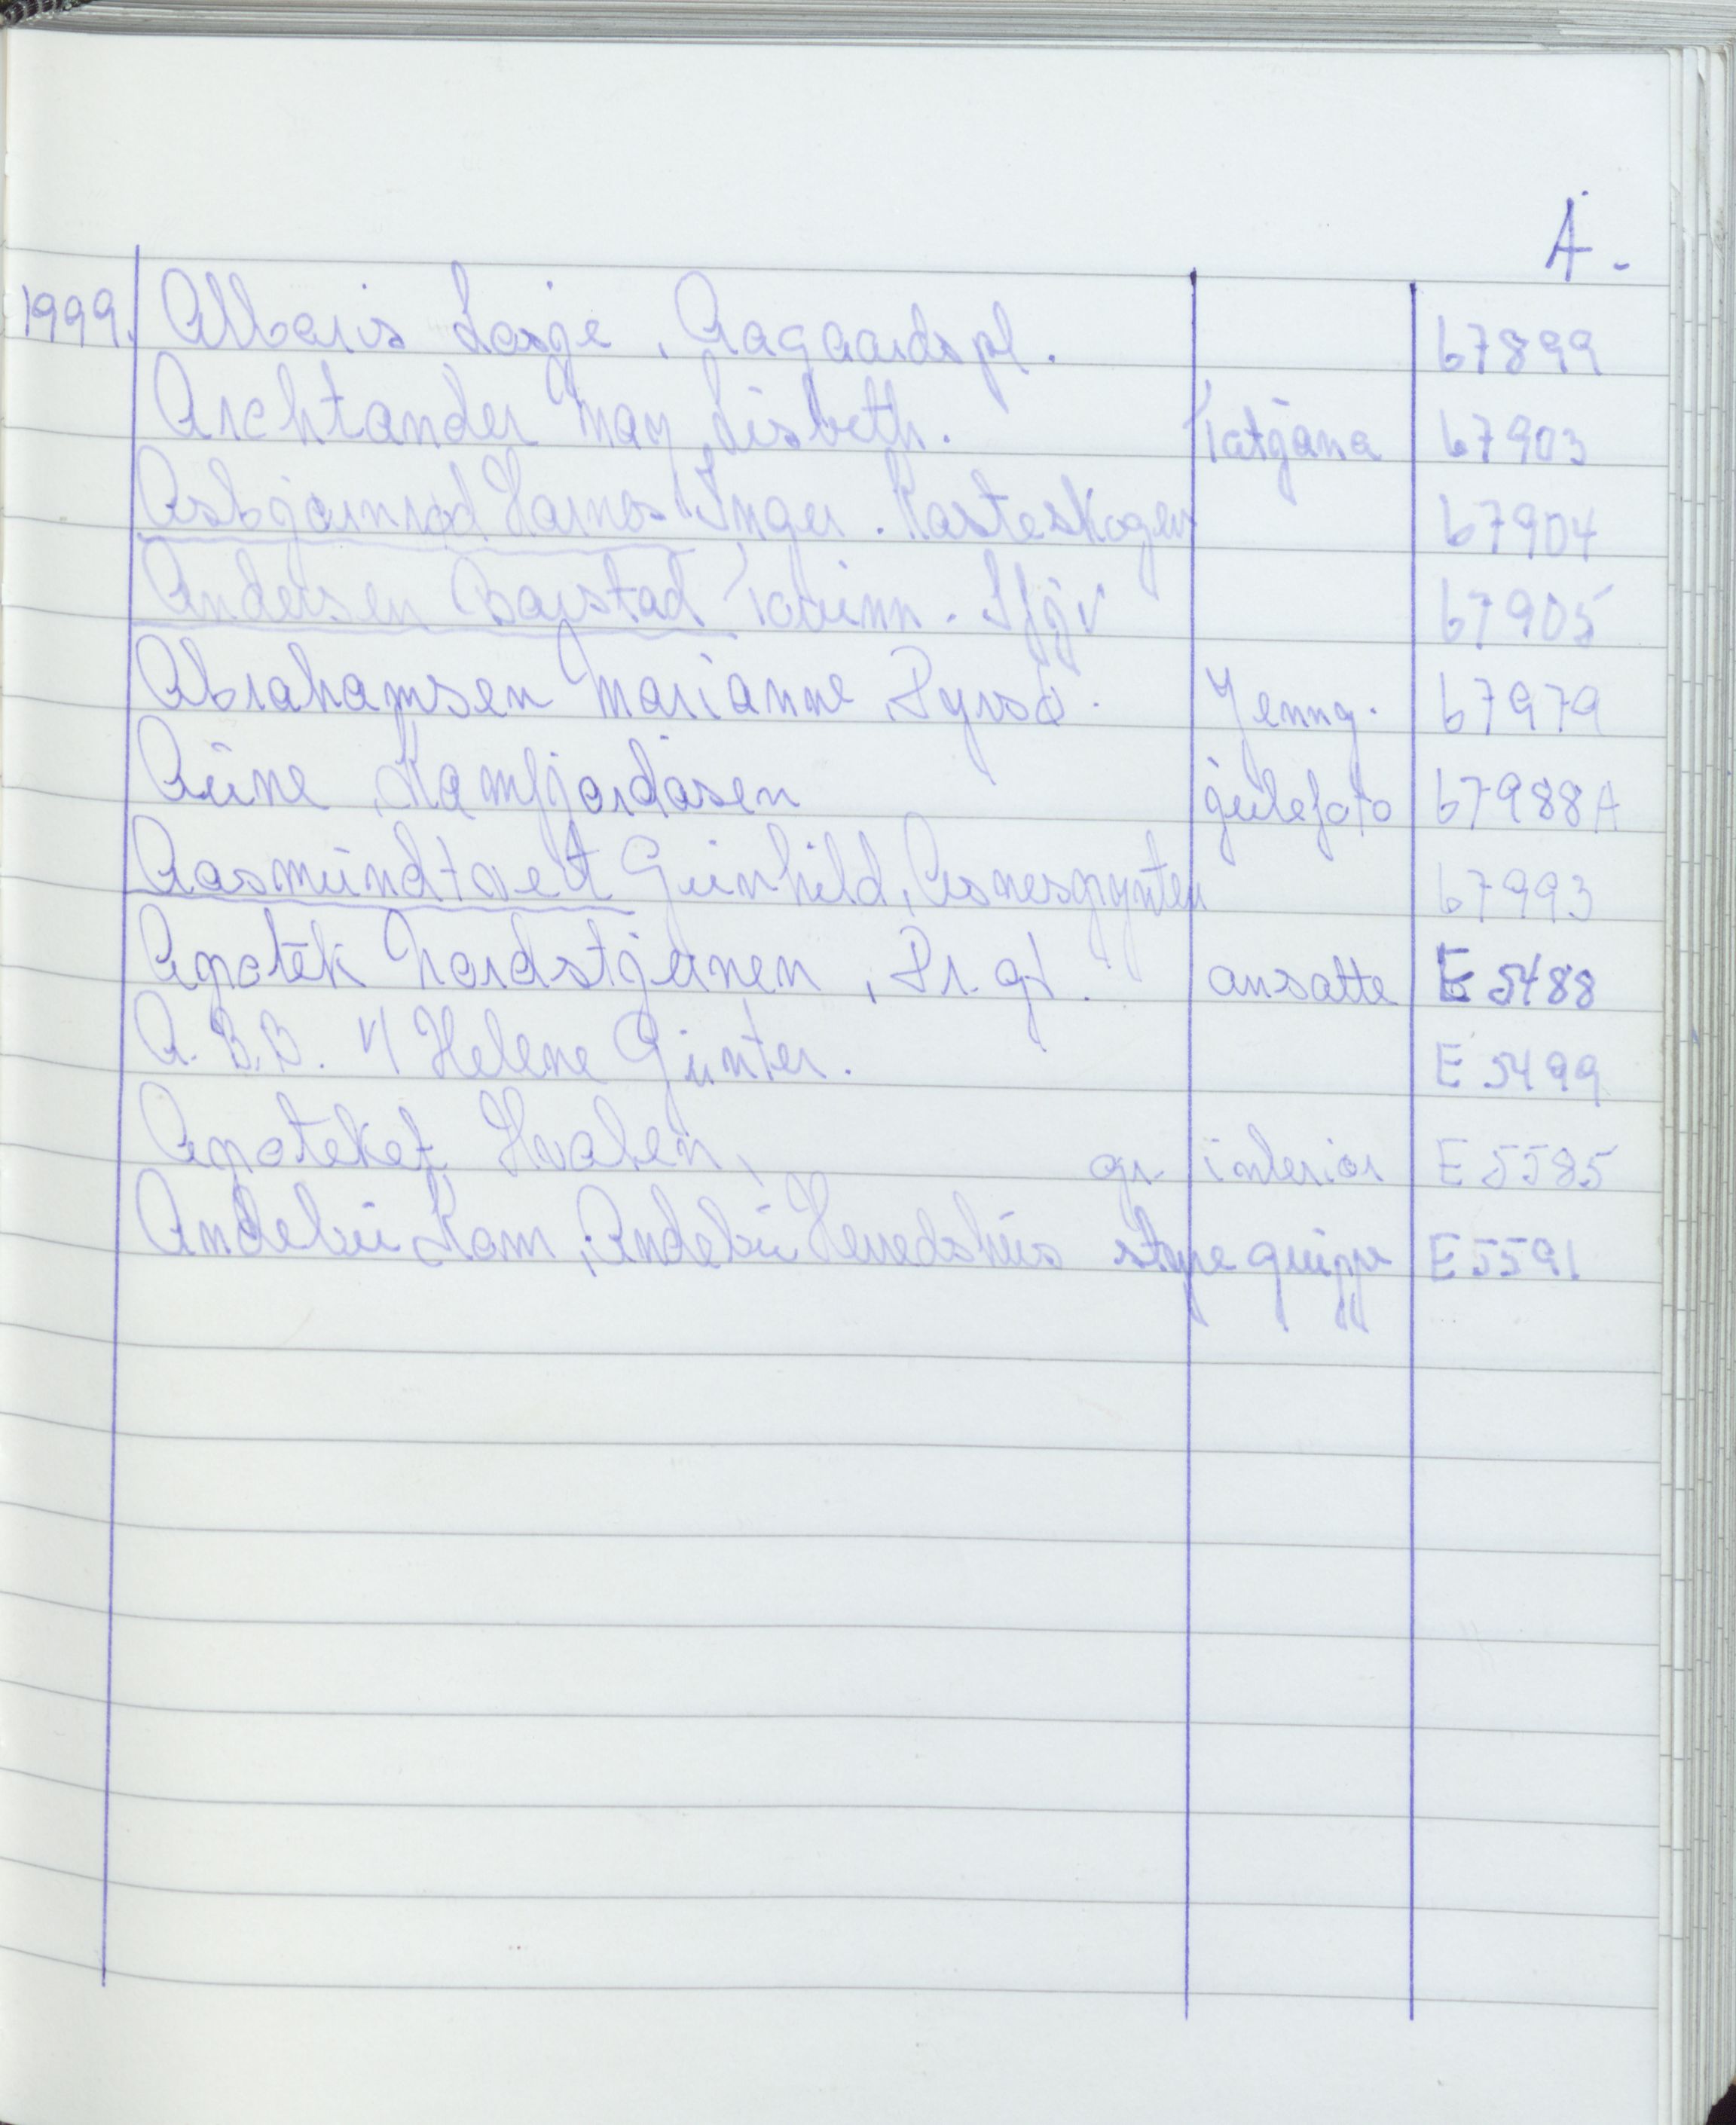 A.
1999. Albaris Lasge, Aagaards pl. 67899
Archtander May Lisbeth. Tatjana 67903
Asbjørnrød Harnes Inger. Rasteskogen 67904
Andersen Barstad Torunn. Sfj v 67905
Abrahamsen Marianne, Syrsø. Jenny. 67979
Aüne, Ramfjordåsen jülefoto 67988A
Aasmündtveit Günhild, Asnesgrynten 67993
Apotek Nordstjernen, Pr. gt. ansatte E 5488
A.B.B. v/ Helene Günter. E 5499
Apoteket Hvalen, gr. interiør E 5585
Andebü Kom, Andebü Herredshüs styregrüppe E 5591